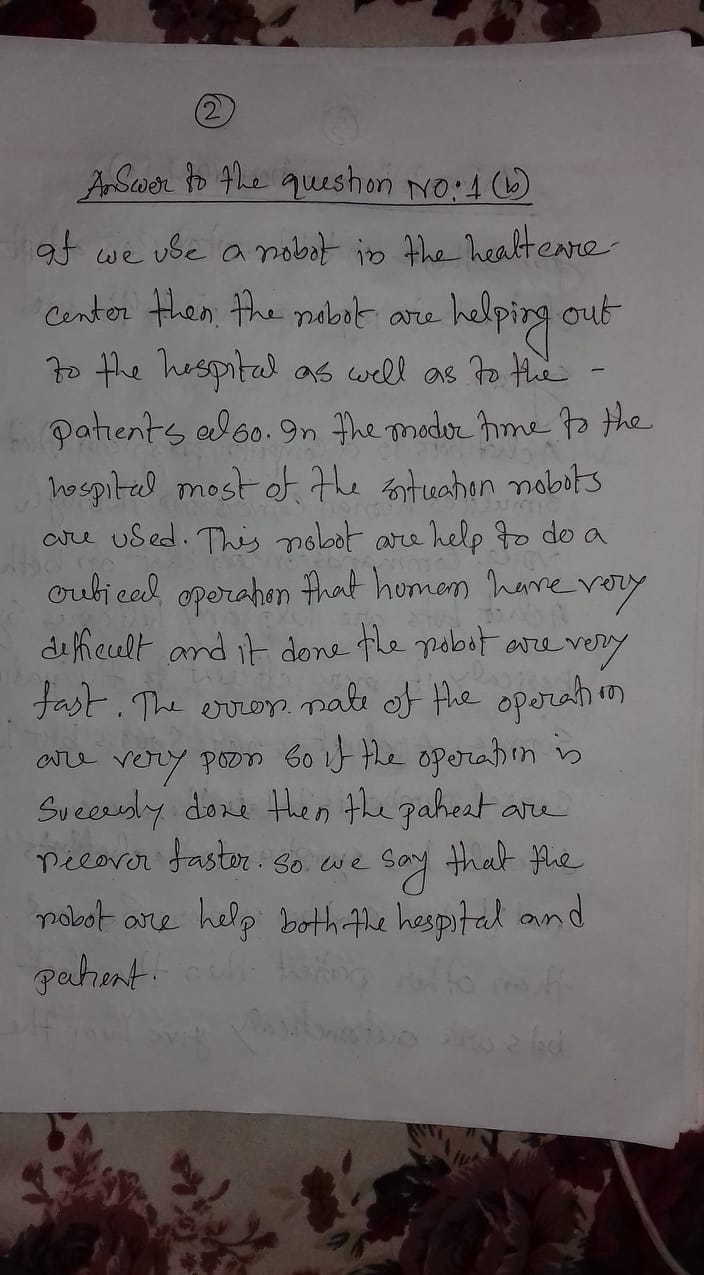 2
Answer to the question NO: 1 (b)
If we use a robot in the healtcare
center then the robot are helping out
to the hospital as well as to the -
patients also. In the moder time to the
hospital most of the situation robots
are used. This robot are help to do a
critical operation that human have very
difficult and it done the robot are very
fast. The error rate of the operation
are very poor so if the operation is
done then the patient are
recover faster. So we say that the
robot are help both the hospital and
patient.